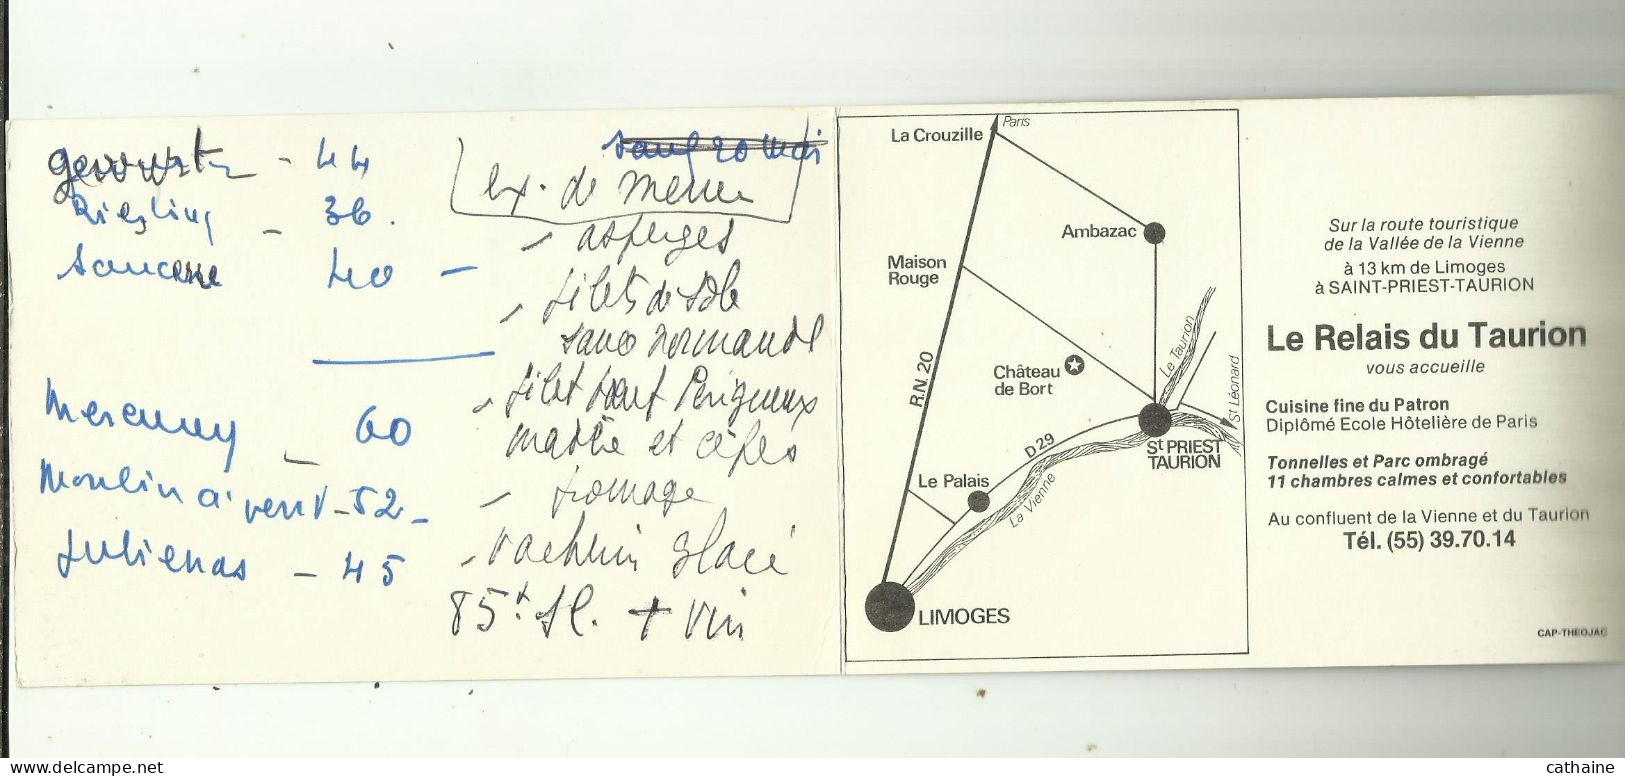 gewurtz - 44
Riesling - 36.
Sancerre 40 -
Mercurey - 60
Moulin à vent - 52 -
Julienas - 45
sauf 20 Mai
ex. de menu
- asperges
- filets de sole
sauce normande
- filet bœuf Périgueux
et cèpes
- fromage
- vachrin glacé
85f + vin
Paris
La Crouzille
Ambazac
Maison
Rouge
Le Taurion
R.N. 20
Château
de Bort
St Léonard
D 29
St PRIEST
TAURION
Le Palais
La Vienne
LIMOGES
Sur la route touristique
de la Vallée de la Vienne
à 13 km de Limoges
à SAINT-PRIEST-TAURION
Le Relais du Taurion
vous accueille
Cuisine fine du Patron
Diplômé Ecole Hôtelière de Paris
Tonnelles et Parc ombragé
11 chambres calmes et confortables
Au confluent de la Vienne et du Taurion
Tél. (55) 39.70.14
CAP-THEOJAC
www.delcampe.net
cathaine